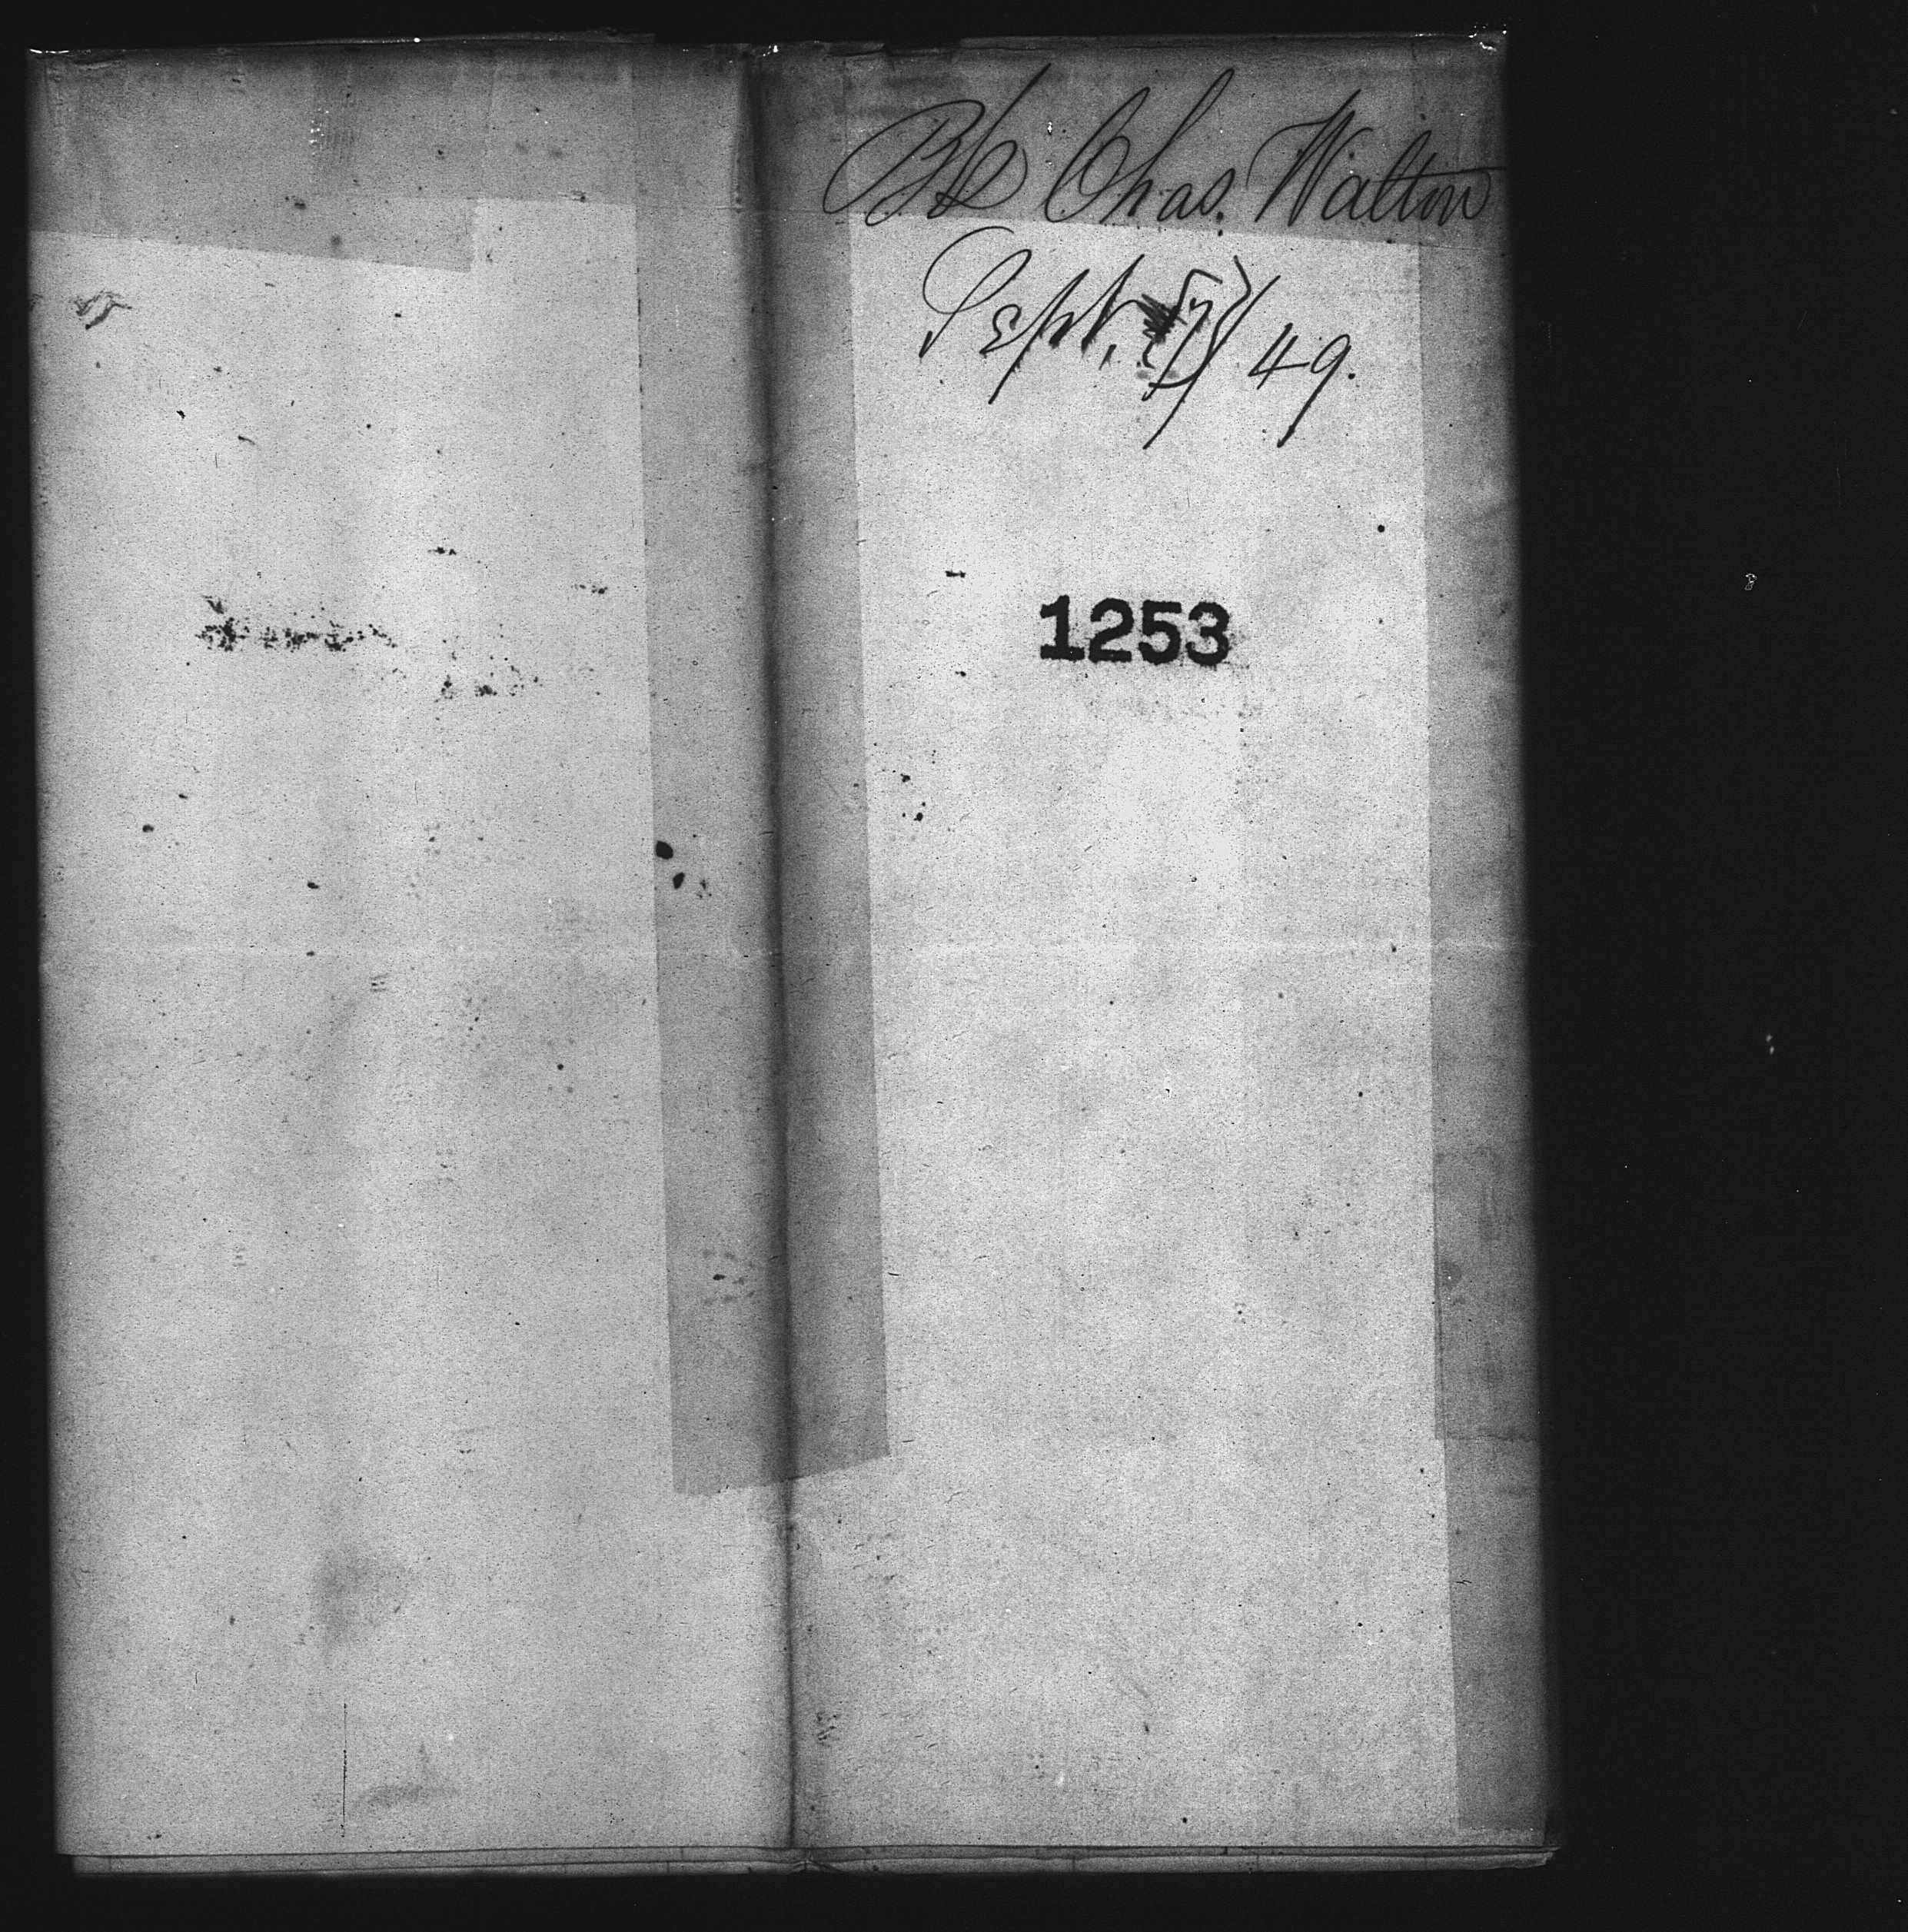 Bk Chas. Walton
Sept. 49.
1253